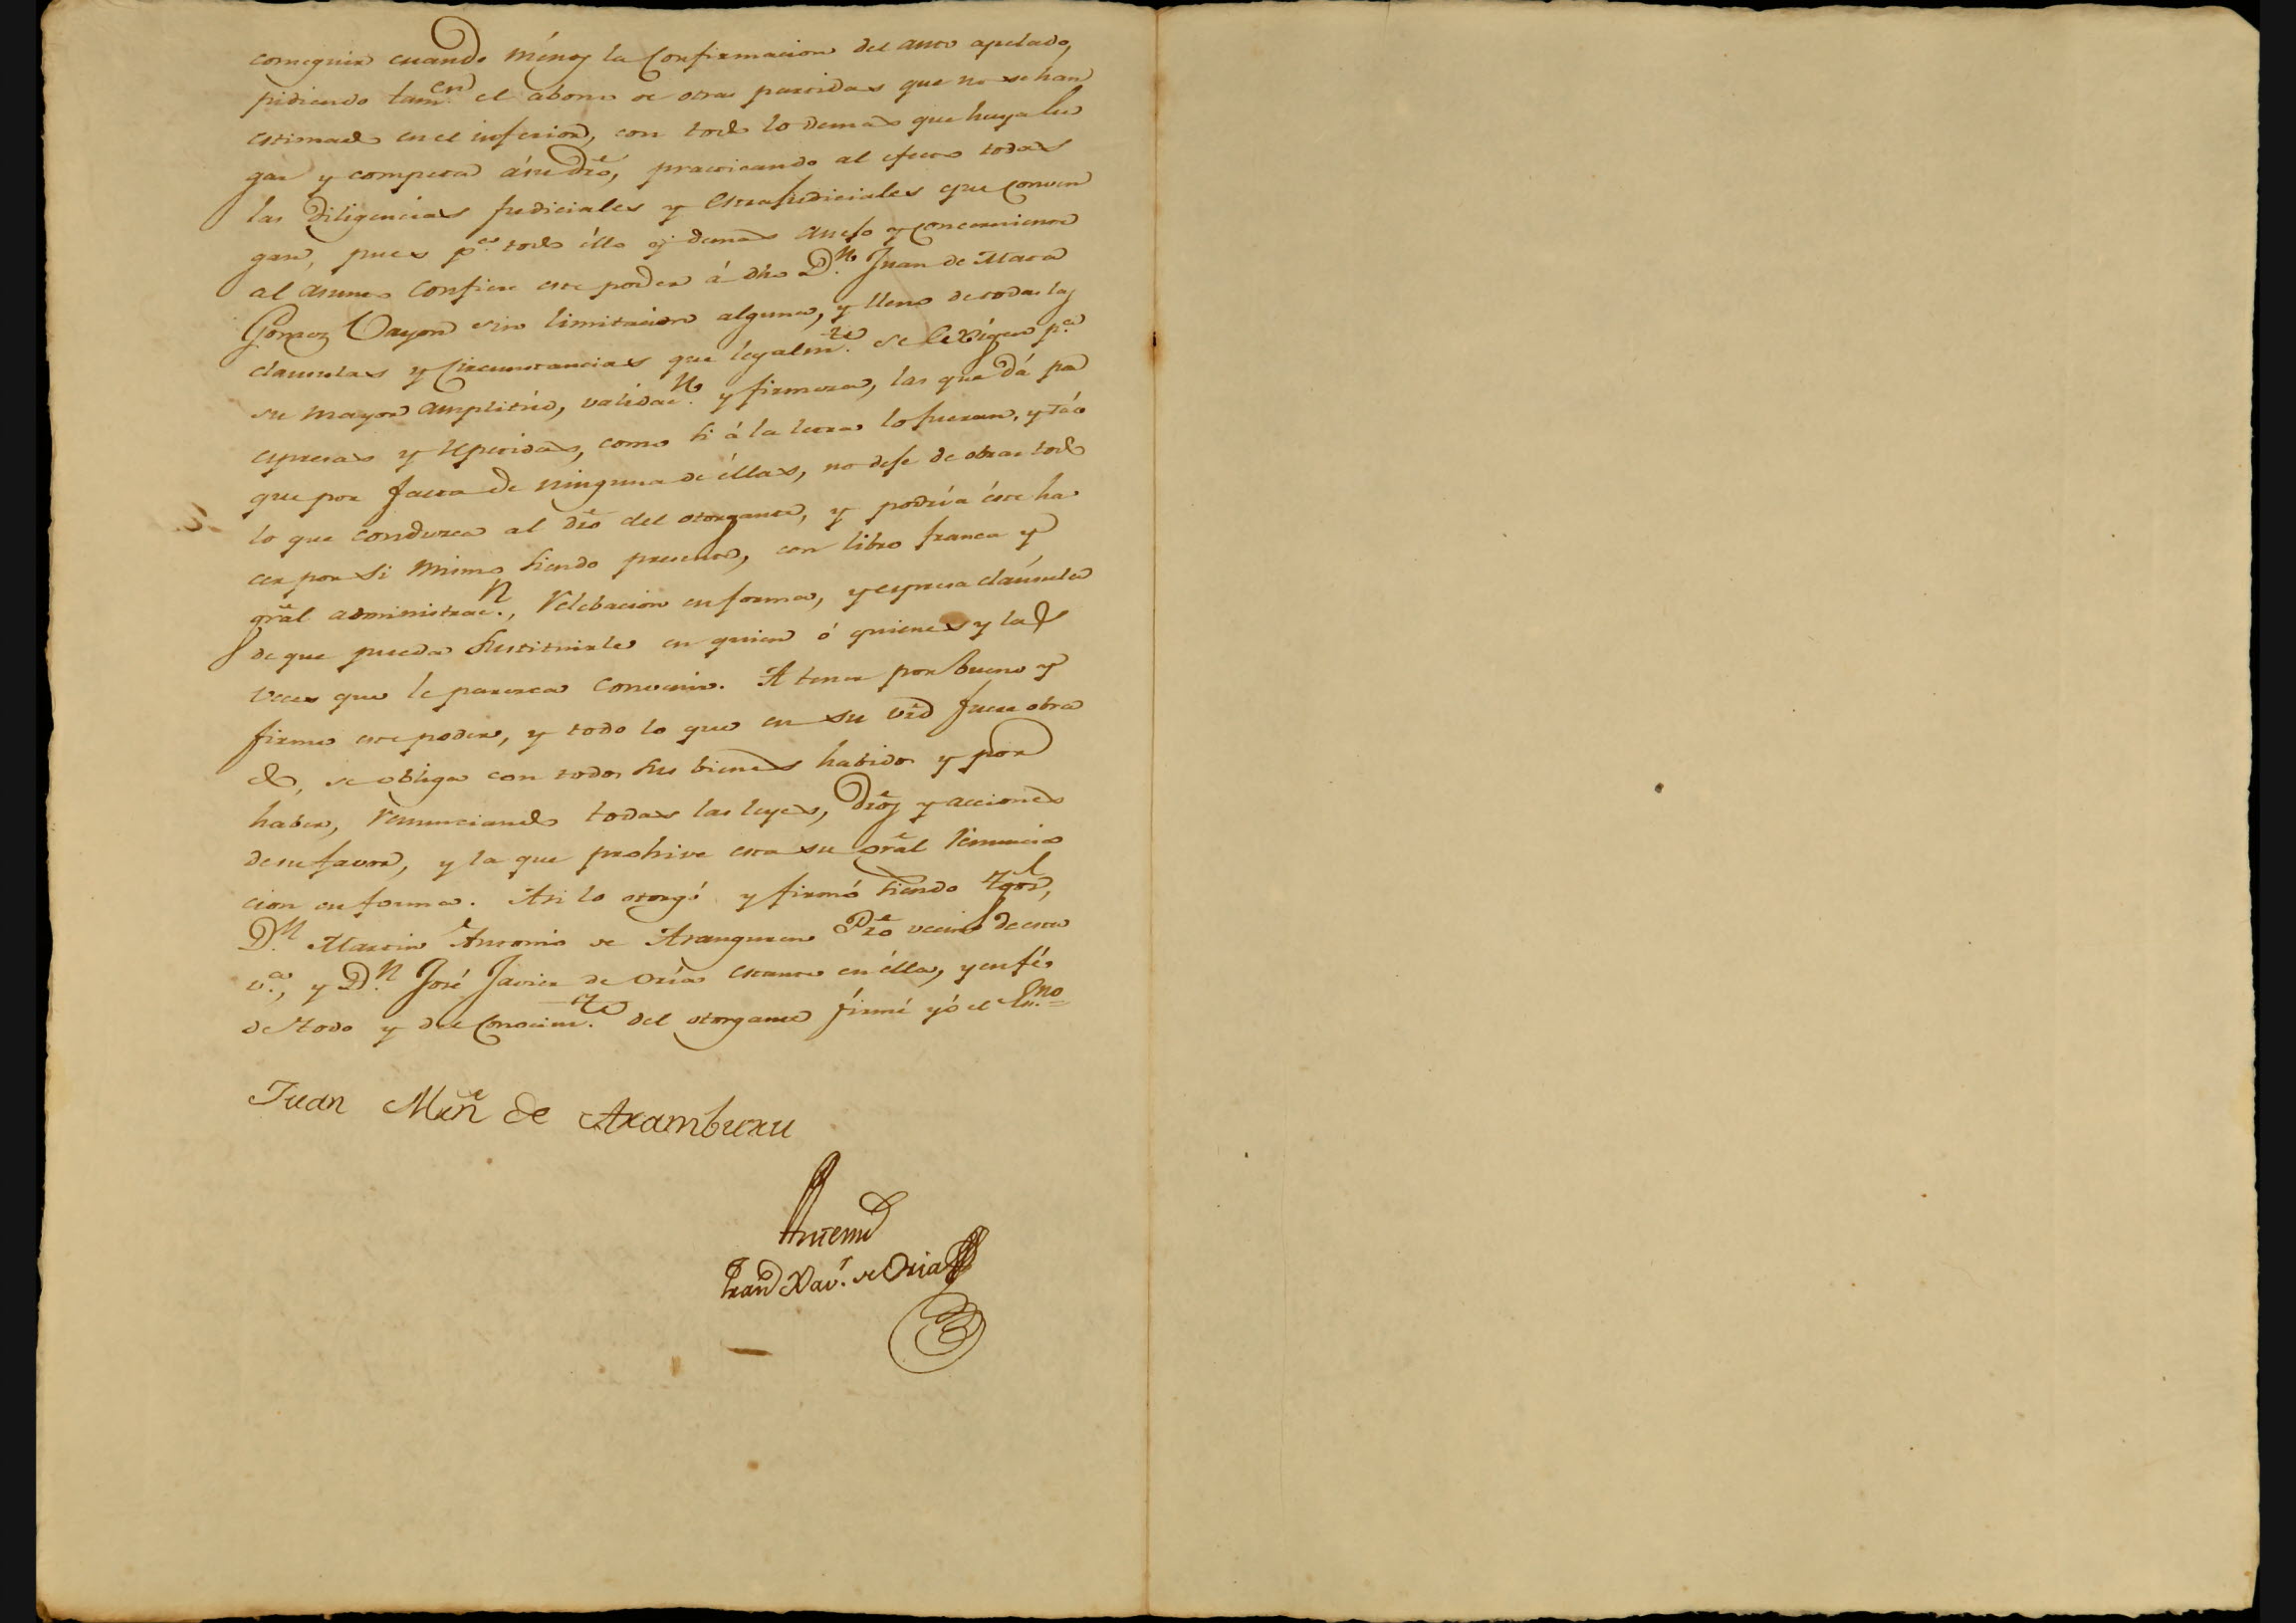 conseguir cuando ménos la Confirmacion del auto apelado,
pidiendo tam.en el abono de otras partidas que no se han
estimado en el inferior, con todo lo demas que haya lu
gar y competa á su dr̃o, practicando al efecto todas
las diligencias Judiciales y Extrajudiciales que Conven
gan, pues p.a todo éllo y demas anejo y concerniente
al asunto Confiere este poder á dho D.n Juan de Mata
Gomez Bayon sin limitacion alguna, y lleno de todas las
clausulas y Circunstancias que legalm.te se exigen p.a
su mayor amplitúd, validac.n y firmeza, las que dá por
expresas y repetidas, como si á la letra lo fueran, y
que por falta de ninguna de éllas, no deje de obrar todo
lo que conduzca al dr̃o del otorgante, y podría éste ha
cer por si mismo siendo presente, con libre franca y
gr̃al administrac.n, relebacion en forma, y expresa cláusula
de que pueda substituirle en quien ó quienes y las
veces que le parezca convenir. A tener por bueno y
firme este poder, y todo lo que en su vr̃d fuere obra
do, se obliga con todos sus bienes habidos y por
haber, renunciando todas las leyes, dr̃os y acciones
de su favor, y la que prohive esta su gr̃al renuncia
cion en forma. Asi lo otorgó y firmó siendo tgos,
D.n Martin Antonio de Aranguren Pr̃o vecino de esta
v.a, y D.n José Javier de Oría estante en élla, y en fé
de todo y del Conocim.to del otorgante firmé yó el Es.no
Juan Mr̃n de Aramburu
Antemi
Fran.co Xav.r de Oria